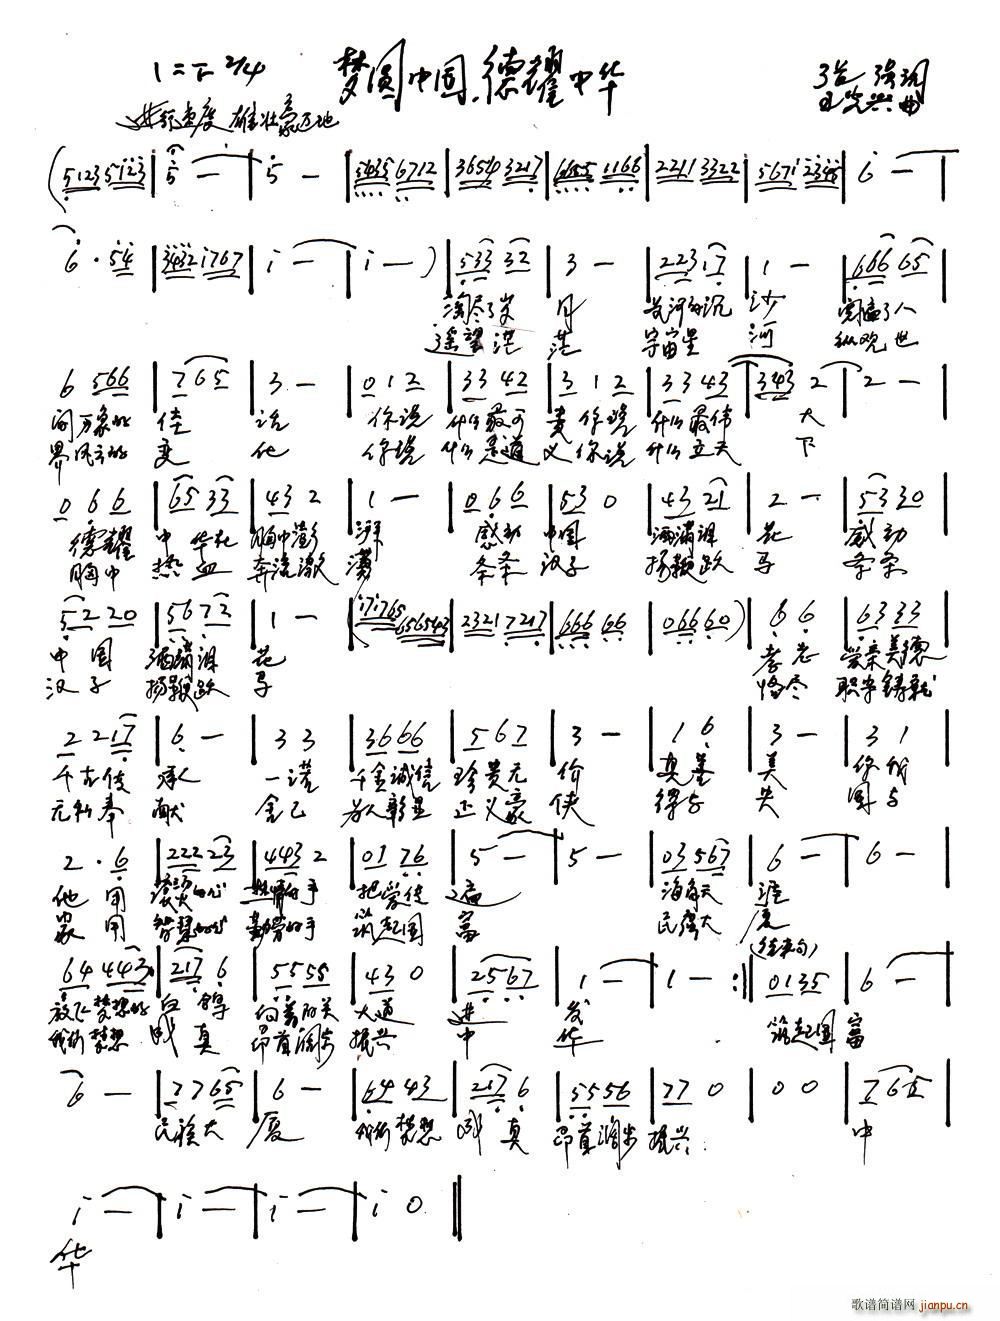 1=F 2/4 梦圆中国 德耀中华
词
曲
雄壮豪迈地
(51235123 | 5 — | 5 — | 5435 6712 | 3654 3217 | 6655 1166 | 2211 3322 | 5671 2345 | 6 — |
6 · 54 | 3432 1767 | i — | i — ) | 533 32 | 3 — | 223 17 | 1 — | 666 65 |
淘尽了岁 月 长河的沉 沙 人
遥望茫 茫 宇宙星 河 纵观世
6 566 | 765 | 3 — | 012 | 33 42 | 3 12 | 33 43 | 343 2 | 2 — |
间万象的 佳 话 你说 什么最可 贵 你说 什么最伟 大
界 的 变 化 你说 什么是道 义 你说 什么立天 下
066 | 65 33 | 43 2 | 1 — | 066 | 53 0 | 43 21 | 2 — | 53 30 |
德耀 中华在 胸中澎 湃 感动 中国 洒满泪 花 感动
胸中 热血 奔流激 条条 汉子 扬鞭跃 马 条条
52 20 | 56 72 | 1 — | (171765 656543 | 2321 7217 | 666 66 | 066 60) | 6 6 | 63 33 |
中国 洒满泪 花 孝老 爱亲美德
汉子 扬鞭跃 马 职守铸就
2 217 | 6 — | 3 3 | 36 66 | 5 67 | 3 — | 1 6 | 3 — | 3 1 |
千古传 承 一诺 千金诚信 珍贵无 价 真善 美 你我
无私奉 献 舍己 为人彰显 正义豪 侠 国与
2 · 6 | 222 23 | 443 2 | 01 76 | 5 — | 5 — | 03 567 | 6 — | 6 — |
他 用 的手 把爱传 遍 海角天 涯
家 用 智慧的 勤劳的手 筑起国 富 民族大 厦
(结束句)
64 443 | 217 6 | 55 55 | 43 0 | 2567 | 1 — | 1 — :‖ 01 35 | 6 — |
放飞梦想的 白 鸽 大道 进 发 筑起国 富
我们梦想 成 真 昂首阔步 振兴 中 华
6 — | 77 65 | 6 — | 64 43 | 217 6 | 55 56 | 77 0 | 0 0 | 765 |
民族大 厦 我们梦想 成 真 昂首阔步 振兴 中
i — | i — | i — | i 0 ‖
华
歌谱简谱网 jianpu.cn